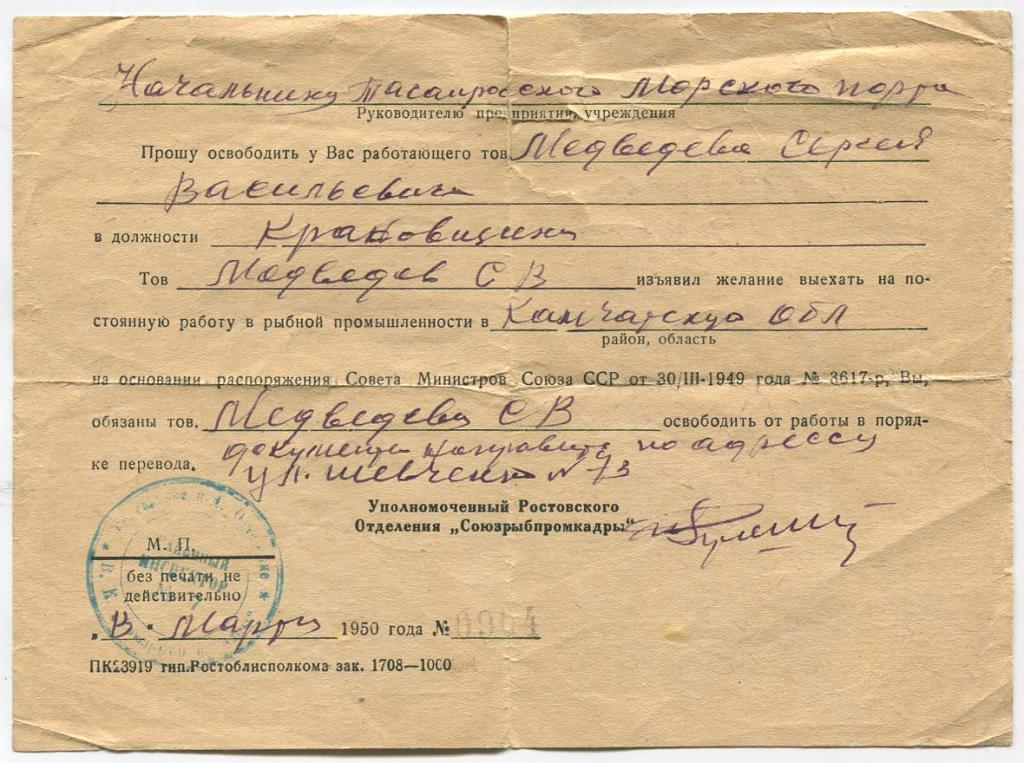 Начальнику Таганрогского Морского порта
Руководителю предприятия, учреждения
Прошу освободить у Вас работающего тов Медведева Сергея
Васильевича
в должности Крановщика
Тов Медведев С В изъявил желание выехать на по-
стоянную работу в рыбной промышленности в Камчатскую Обл
район, область
на основании распоряжения Совета Министров Союза ССР от 30/III-1949 года № 3617-р, Вы,
обязаны тов. Медведева С В освободить от работы в поряд-
ке перевода. документы направить по адрессу
ул. Шевченко № 73
Уполномоченный Ростовского
Отделения „Союзрыбпромкадры"
М. П.
ИНСПЕКТОР
без печати не
действительно
„В" Марта 1950 года № 0004
ПК23919 тип.Ростоблисполкома зак. 1708—1000